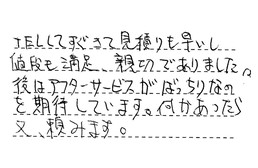 TELLしてすぐ来て見積りも早いし
値段も満足、親切でありました。
後はアフターサービスがばっちりなの
を期待しています。何かあったら
又、頼みます。